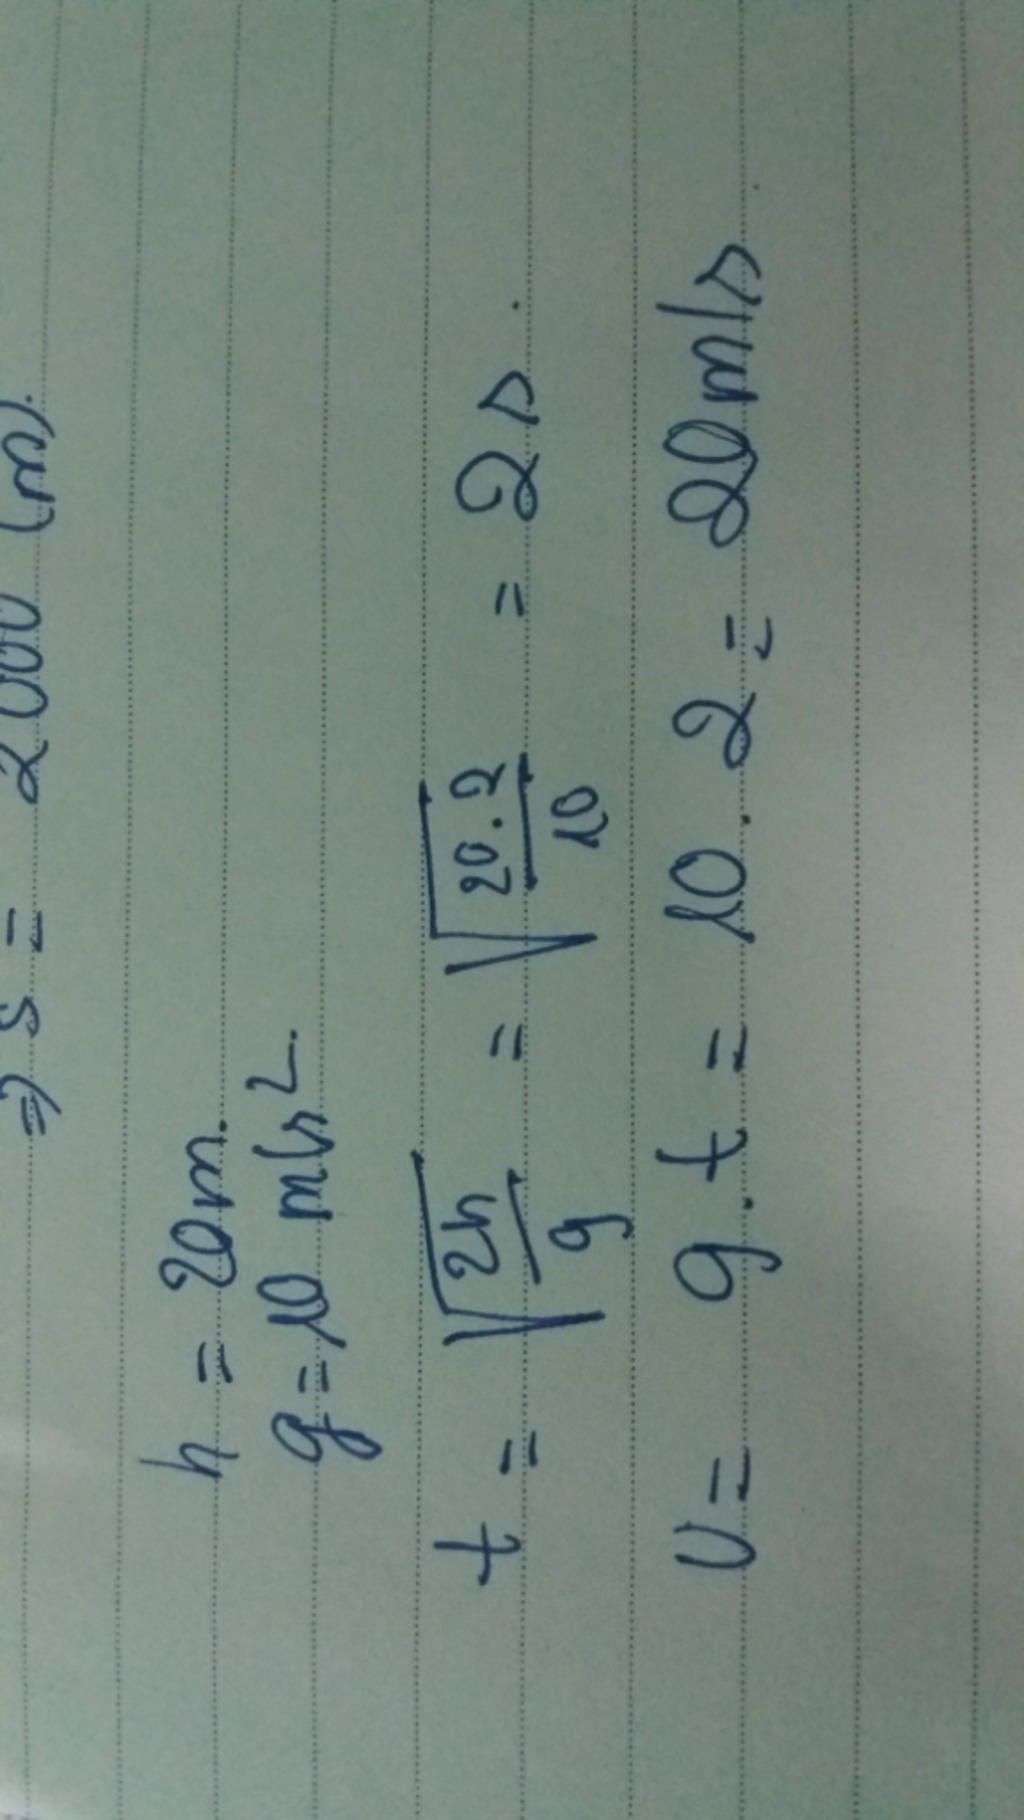 => s = 2000 (m).
h = 20m.
g = 10 m/s².
t = √(2h/g) = √(20.2/10) = 2s.
v = g.t = 10.2 = 20m/s